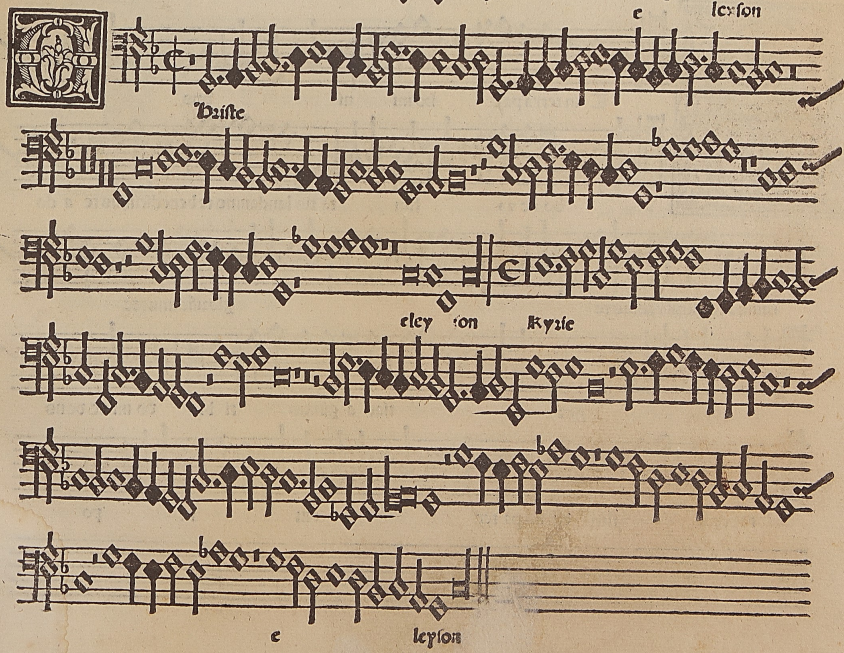 e leyson
Christe
eley son Kyrie
e leyson